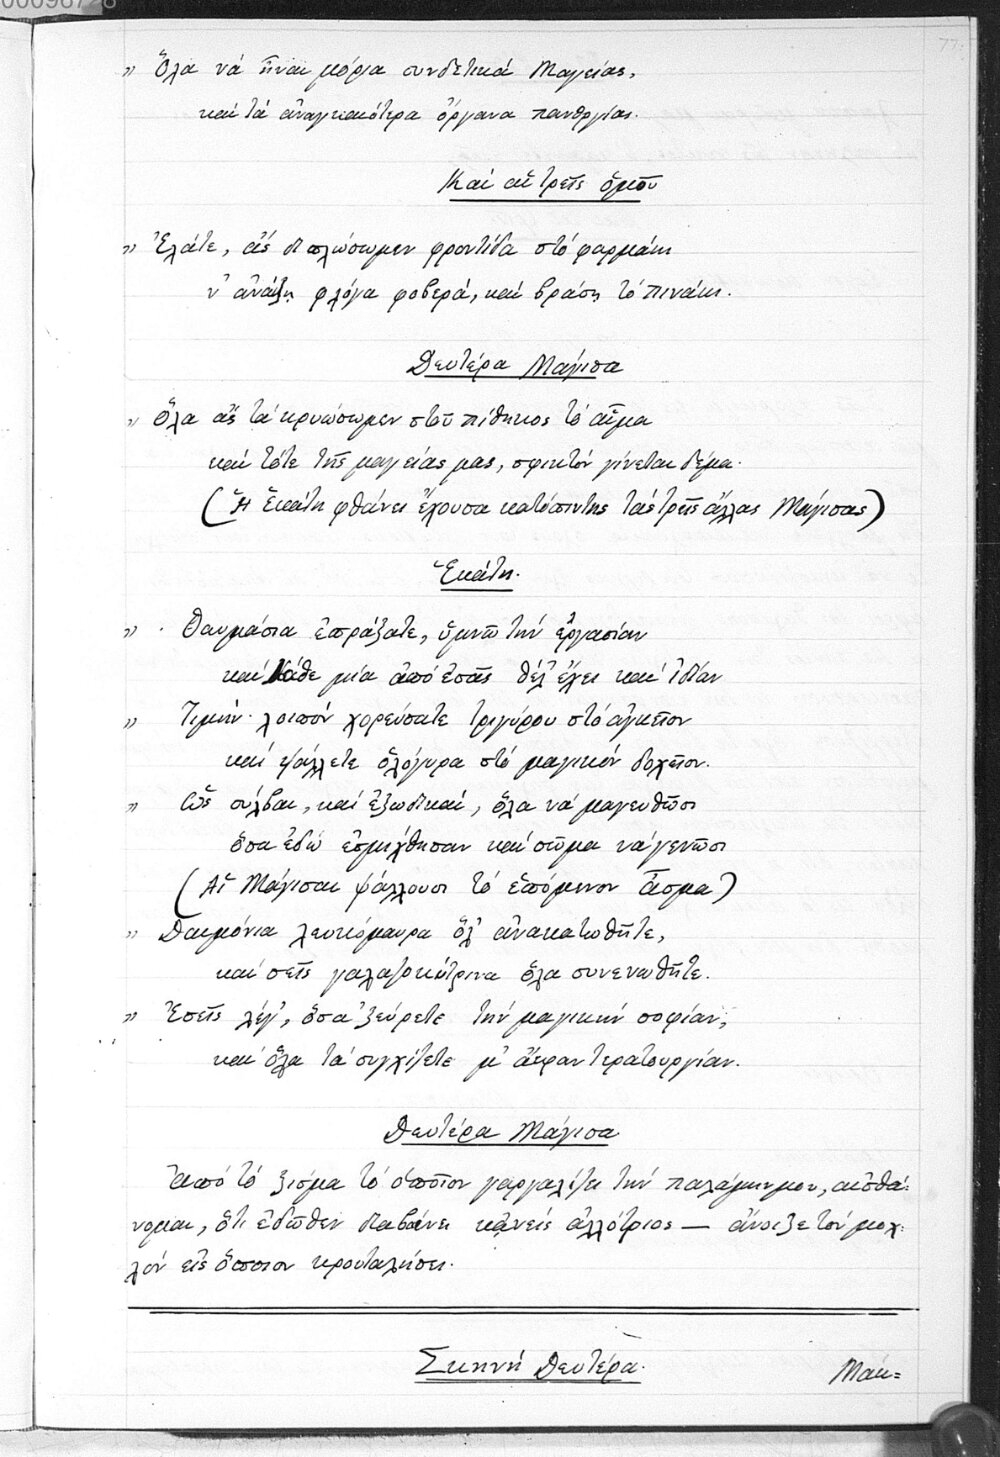 00096728
77.
" Ὅλα νά ᾖναι μόρια συνδετικά Μαγείας,
καί τά ἀναγκαιότερα ὄργανα πανουργίας.
Καί αἱ τρεῖς ὁμοῦ
" Ἐλᾶτε, ἄς διπλώσωμεν φροντίδα στό φαρμάκι
ν' ἀνάξῃ φλόγα φοβερά, καί βράσῃ τό πινάκι.
Δευτέρα Μάγισα
" Ὅλα ἄς τά κρυώσωμεν στοῦ πίθηκος τό αἷμα
καί τότε τῆς μαγείας μας, σφικτόν γίνεται δέμα.
(Ἡ Ἑκάτη φθάνει ἔχουσα κατόπιν της τάς τρεῖς ἄλλας Μάγισας)
Ἑκάτη.
" Θαυμάσια ἐπράξατε, ὑμνῶ τήν ἐργασίαν
καί κάθε μία ἀπό ἐσᾶς θέλ' ἔχει καί ἰδίαν
" Τιμήν· λοιπόν χορεύσατε τριγύρου στό ἀγγεῖον
καί ψάλλετε ὁλόγυρα στό μαγικόν δοχεῖον.
" Ὡς σύλβαι, καί ἐξωτικαί, ὅλα νά μαγευθῶσι
ὅσα ἐδώ ἐσμίχθησαν καί σῶμα νά γενῶσι
(Αἱ Μάγισαι ψάλλουσι τό ἑπόμενον ᾆσμα)
" Δαιμόνια λευκόμαυρα ὅλ' ἀνακατωθῆτε,
καί σεῖς γαλαζοκίτρινα ὅλα συνενωθῆτε.
" Ἐσεῖς λέγ', ὅσα ξεύρετε τήν μαγικήν σοφίαν,
καί ὅλα τά συγχίζετε μ' ἄπειραν τερατουργίαν.
Δευτέρα Μάγισα
Ἀπό τό ξίσμα τό ὁποῖον γαργαλίζει τήν παλάμην μου, αἰσθά-
νομαι, ὅτι ἐδῶθεν διαβαίνει κανείς ἀλλότριος — ἄνοιξε τόν μοχ-
λόν εἰς ὅποιον κρουταλήσει.
Σκηνή Δευτέρα.
Μάκ=